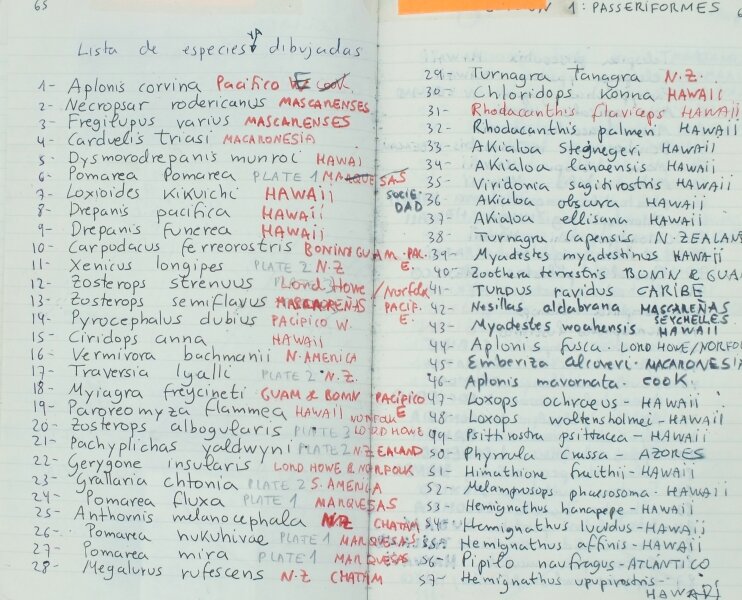 65
Lista de especies dibujadas
1- Aplonis corvina Pacifico E
2- Necropsar rodericanus MASCARENSES
3- Fregilupus varius MASCARENSES
4- Carduelis triasi MACARONESIA
5- Dysmorodrepanis munroi HAWAI
6- Pomarea Pomarea PLATE 1 MARQUESAS SOCIEDAD
7- Loxioides Kikuichi HAWAii
8- Drepanis pacifica HAWAii
9- Drepanis funerea HAWAii
10- Carpodacus ferreorostris BONIN & GUAM · PAC. E.
11- Xenicus longipes PLATE 2 N.Z
12- Zosterops strenuus Lord Howe / Norfolk
13- Zosterops semiflavus MASCAREÑAS
14- Pyrocephalus dubius PACIFICO W. PACIF. E.
15- Ciridops anna HAWAII
16- Vermivora bachmanii N. AMERICA
17- Traversia lyalli PLATE 2 · N.Z.
18- Myiagra freycineti GUAM & BONIN PACIFICO E
19- Paroreomyza flammea HAWAII
20- Zosterops albogularis PLATE 3 NORFOLK LORD HOWE
21- Pachyplichas yaldwyni PLATE 2 N. ZEALAND
22- Gerygone insularis LORD HOWE & NORFOLK
23- Grallaria chtonia PLATE 2 S. AMERICA
24- Pomarea fluxa PLATE 1 MARQUESAS
25- Anthornis melanocephala N.Z CHATAM
26- Pomarea nukuhivae PLATE 1 MARQUESAS
27- Pomarea mira PLATE 1 MARQUESAS
28- Megalurus rufescens N.Z CHATAM
1: PASSERIFORMES 6
29- Turnagra tanagra N.Z.
30- Chloridops Konna HAWAII
31- Rhodacanthis flaviceps HAWAII
32- Rhodacanthis palmeri HAWAII
33- AKialoa stegnegeri HAWAII
34- AKialoa lanaensis HAWAII
35- Viridonia sagitirostris HAWAII
36 AKialoa obscura HAWAII
37- AKialoa ellisana HAWAII
38- Turnagra Capensis N.ZEALAN
39- Myadestes myadestinus HAWAII
40- Zoothera terrestris BONIN & GUA
41- TURDUS ravidus CARIBE
42- Nesillas aldabrana MASCAREÑAS SEYCHELLES
43- Myadestes woahensis HAWAII
44- Aplonis fusca. LORD HOWE/NORFO
45- Emberiza alcoveri - MACARONESIA
46- Aplonis mavornata. COOK
47- Loxops ochraeus - HAWAII
48- Loxops woltensholmei - HAWAII
49- Psittirostra psittacea - HAWAII
50- Phyrrula crassa - AZORES
51- Himathione fraithii - HAWAII
52- Melamprosops phaeosoma · HAWAII
53- Hemignathus hanapepe - HAWAII
54- Hemignathus lucidus - HAWAII
55- Hemignathus affinis - HAWAII
56- Pipilo naufragus - ATLANTICO
57- Hemignathus upupirostris - HAWAII